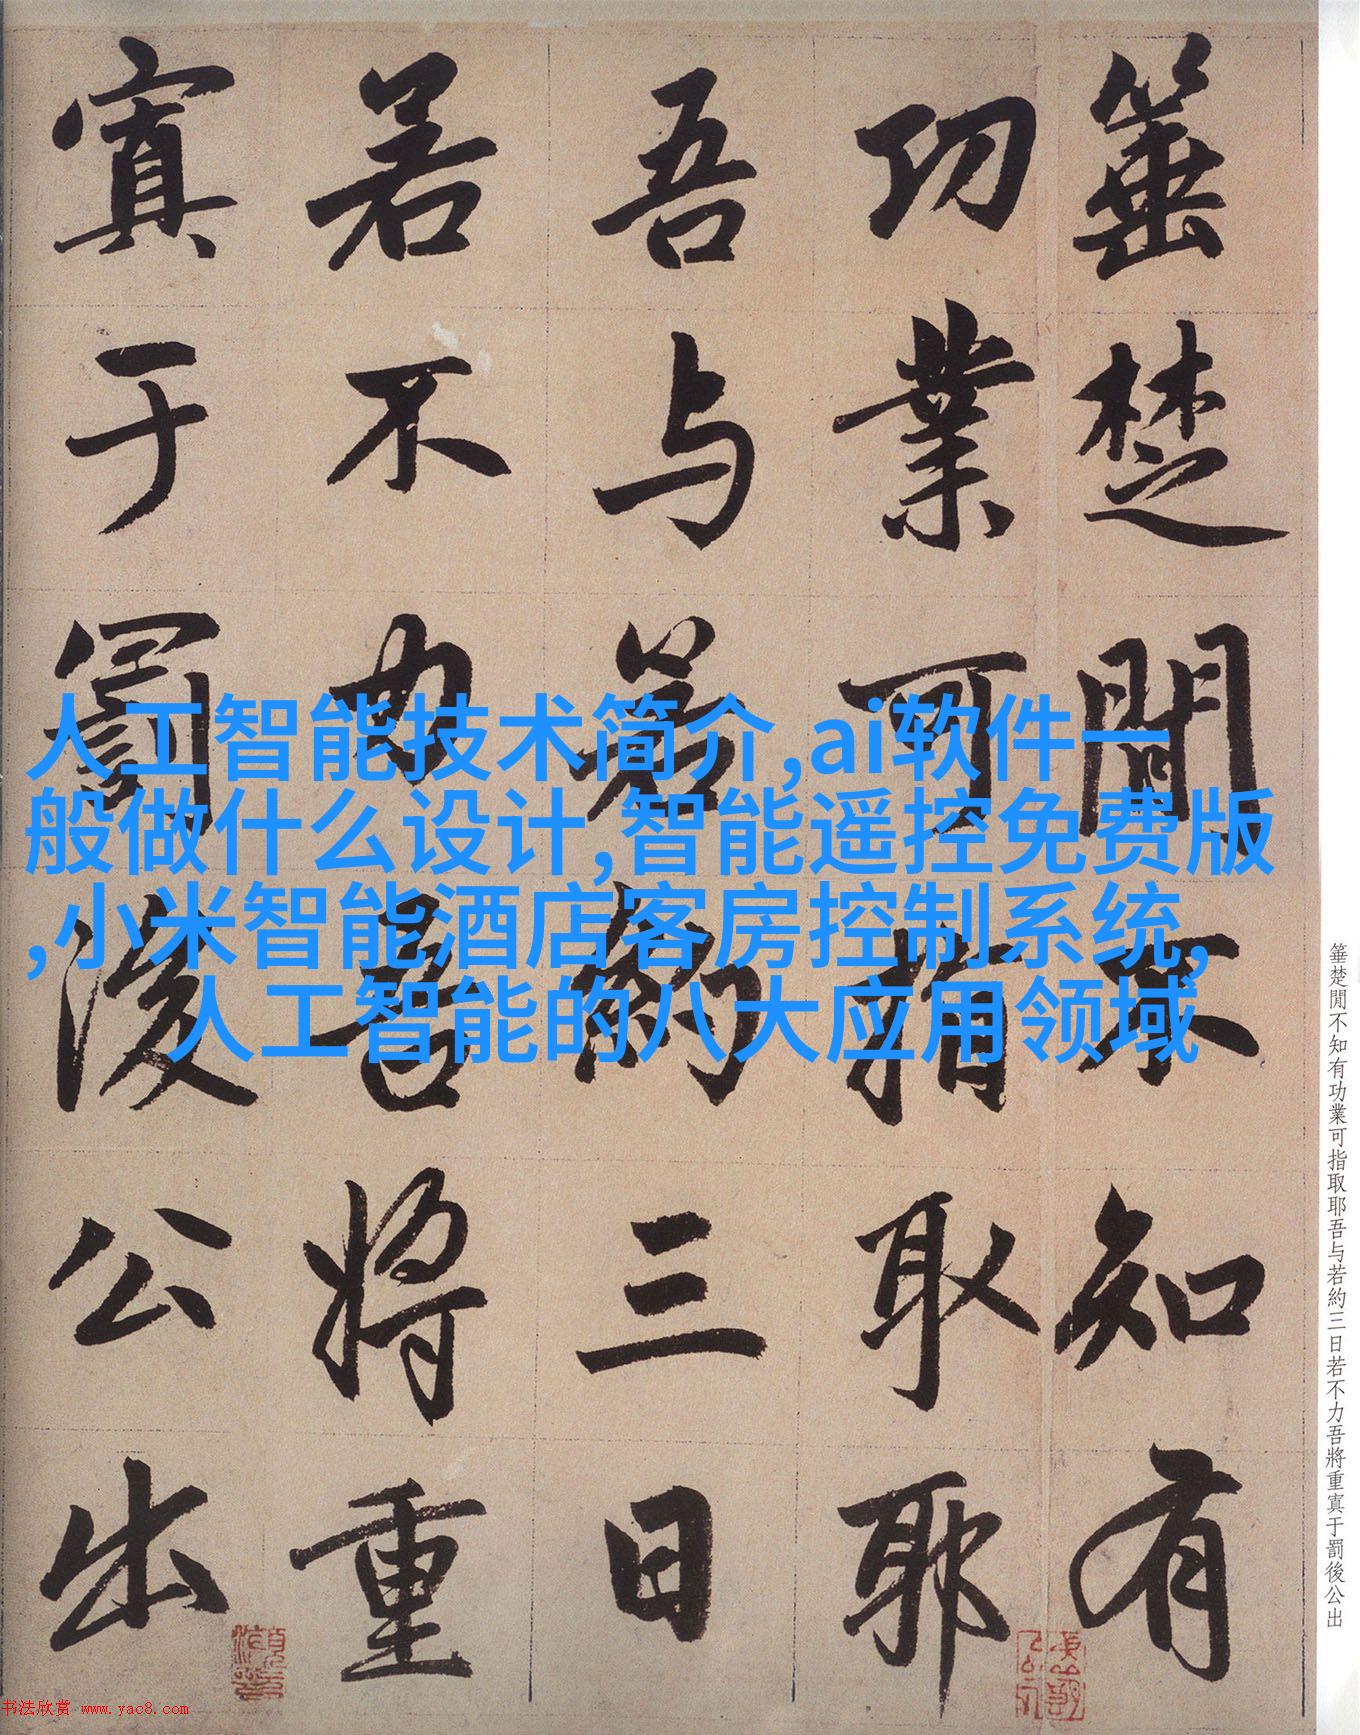 箠楚閒不知有
功業可指取耶
吾与若約三日
若不力吾將重
寘于罰後公出
人工智能技术简介,ai软件一
般做什么设计,智能遥控免费版
,小米智能酒店客房控制系统,
人工智能的八大应用领域
箠楚閒不知有功業可指取耶吾与若約三日若不力吾將重寘于罰後公出
书法欣赏 www.yac8.com